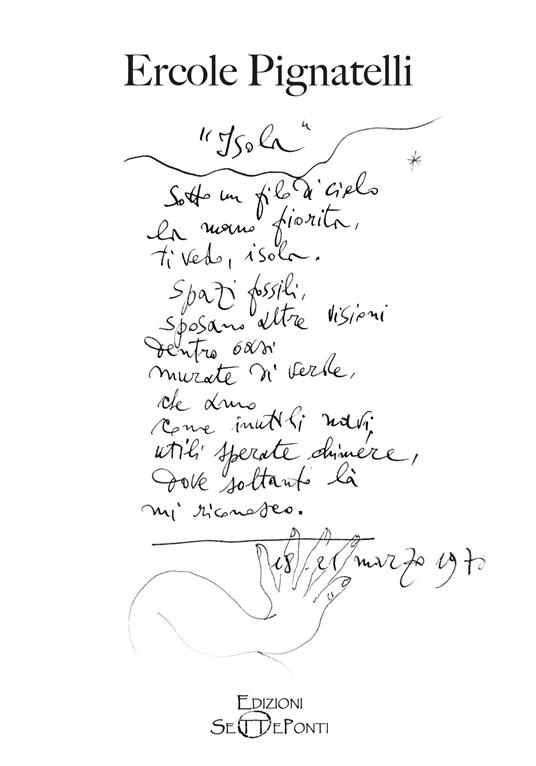 Ercole Pignatelli
"Isola"
Sotto un filo di cielo
la mano fiorita,
ti vedo, isola.
Spazi fossili,
sposano altre visioni
dentro oasi
murate di verde,
che amo
come inutili navi,
utili sperate chimere,
dove soltanto là
mi riconosco.
18-21 marzo 1970
Edizioni
SettePonti